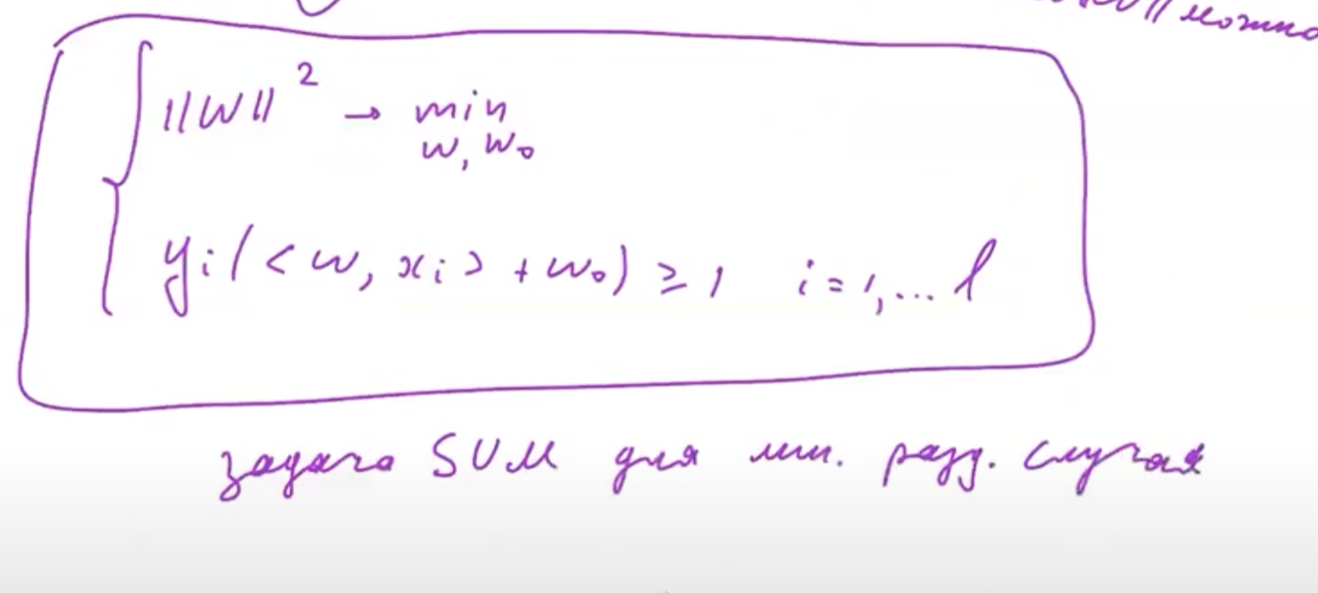 можно
||w||² → min
w, w₀
yᵢ(<w, xᵢ> + w₀) ≥ 1 i = 1,... l
задача SVM для лин. разд. случая